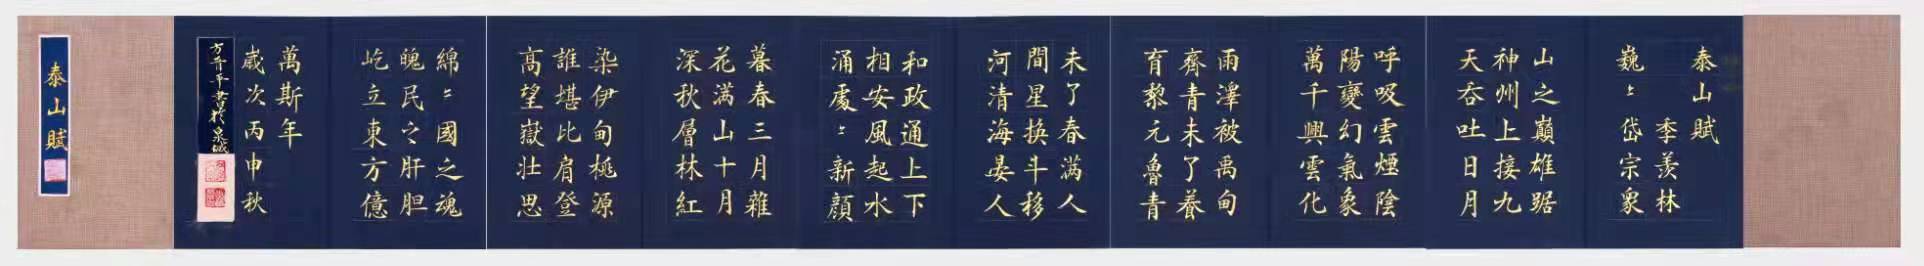 泰山賦
季羨林
巍〻岱宗衆
山之巔雄踞
神州上接九
天吞吐日月
呼吸雲煙陰
陽變幻氣象
萬千興雲化
雨澤被禹甸
齊青未了養
育黎元魯青
未了春滿人
間星換斗移
河清海晏人
和政通上下
相安風起水
涌處〻新顏
暮春三月雜
花滿山十月
深秋層林紅
染伊甸桃源
誰堪比肩登
高望嶽壯思
綿〻國之魂
魄民之肝胆
屹立東方億
萬斯年
歲次丙申秋
泰山賦